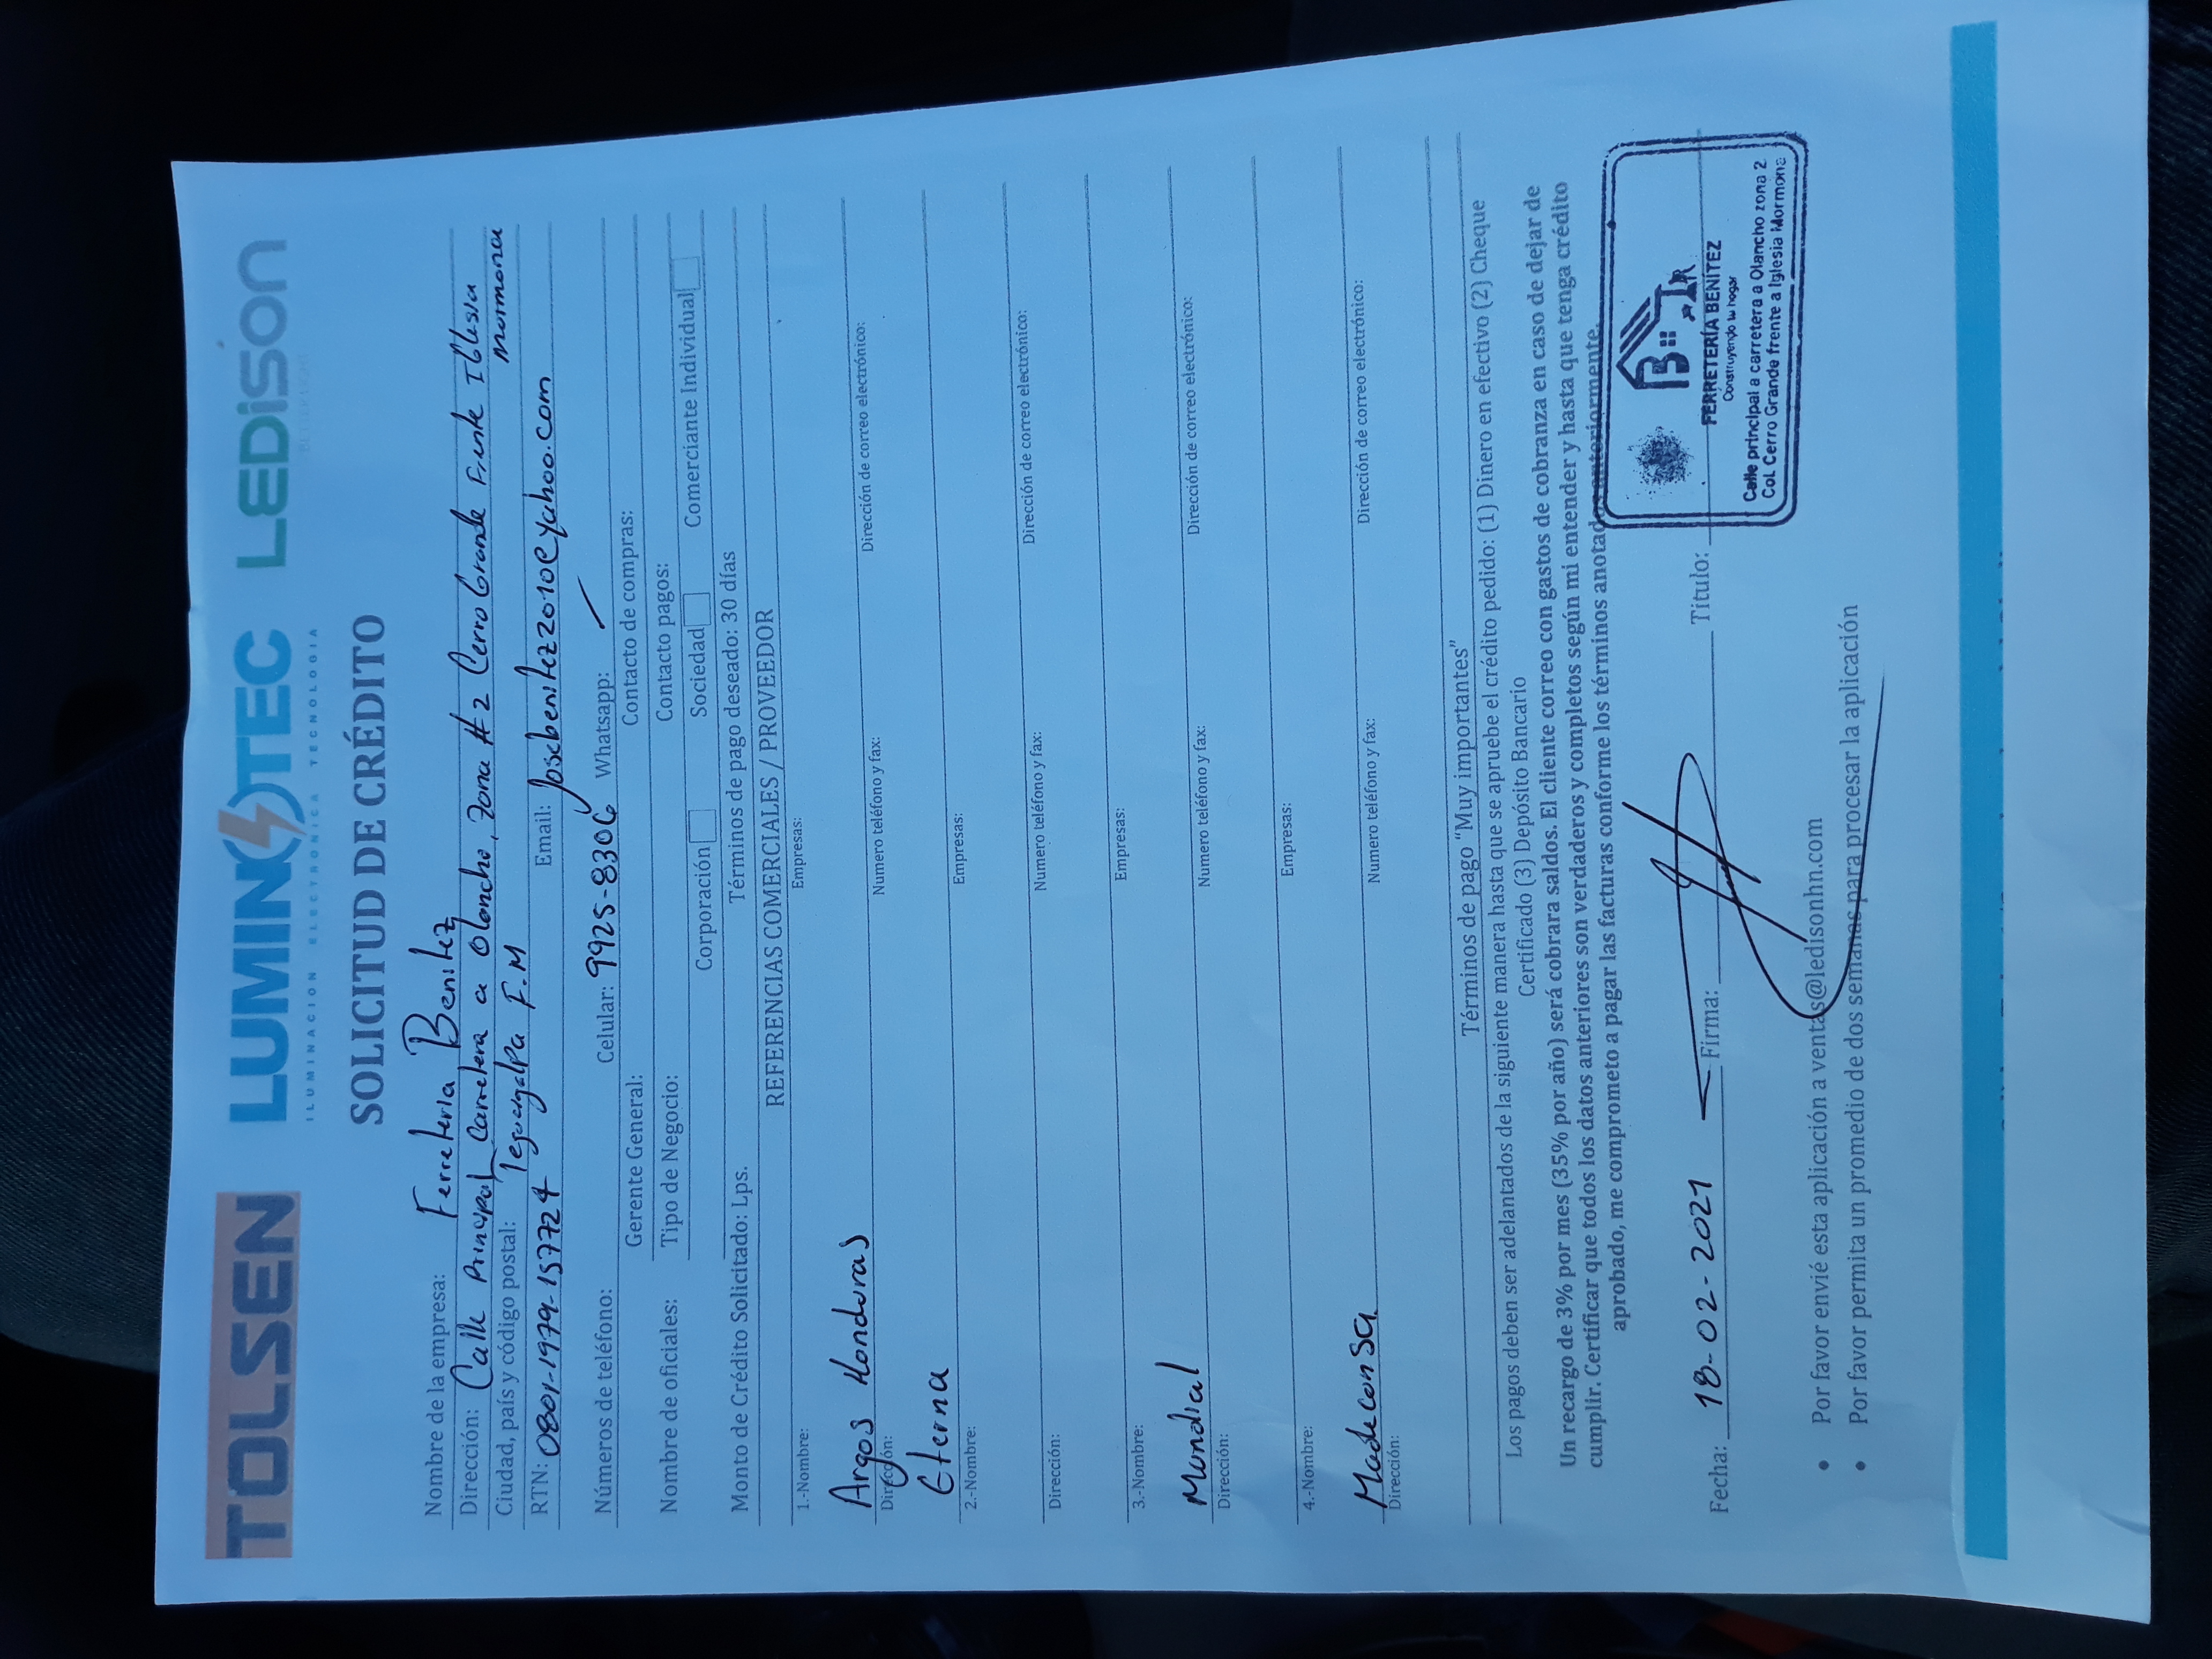 TOLSEN LUMINOTEC LEDiSON
ILUMINACION ELECTRONICA TECNOLOGIA
BETTER LIGHT
SOLICITUD DE CRÉDITO
Nombre de la empresa: Ferreteria Benitez
Dirección: Calle Principal Carretera a Olancho, Zona #2 Cerro Grande Frente Iglesia
Mormona
Ciudad, país y código postal: Tegucigalpa F.M
RTN: 0801-1979-157724 Email: Josebenitez2010@yahoo.com
Números de teléfono: Celular: 9925-8306 Whatsapp:
Gerente General: Contacto de compras:
Nombre de oficiales: Tipo de Negocio: Contacto pagos:
Corporación Sociedad Comerciante Individual
Monto de Crédito Solicitado: Lps. Términos de pago deseado: 30 días
REFERENCIAS COMERCIALES / PROVEEDOR
1.-Nombre: Empresas:
Argos Honduras
Dirección: Numero teléfono y fax: Dirección de correo electrónico:
Eterna
2.-Nombre: Empresas:
Dirección: Numero teléfono y fax: Dirección de correo electrónico:
3.-Nombre: Empresas:
Mundial
Dirección: Numero teléfono y fax: Dirección de correo electrónico:
4.-Nombre: Empresas:
Madeconsa
Dirección: Numero teléfono y fax: Dirección de correo electrónico:
Términos de pago “Muy importantes”
Los pagos deben ser adelantados de la siguiente manera hasta que se apruebe el crédito pedido: (1) Dinero en efectivo (2) Cheque
Certificado (3) Depósito Bancario
Un recargo de 3% por mes (35% por año) será cobrara saldos. El cliente correo con gastos de cobranza en caso de dejar de
cumplir. Certificar que todos los datos anteriores son verdaderos y completos según mi entender y hasta que tenga crédito
aprobado, me comprometo a pagar las facturas conforme los términos anotados anteriormente.
Fecha: 18-02-2021 Firma: Titulo:
B
FERRETERÍA BENÍTEZ
Construyendo tu hogar
Calle principal a carretera a Olancho zona 2
Col. Cerro Grande frente a Iglesia Mormona
• Por favor envié esta aplicación a ventas@ledisonhn.com
• Por favor permita un promedio de dos semanas para procesar la aplicación